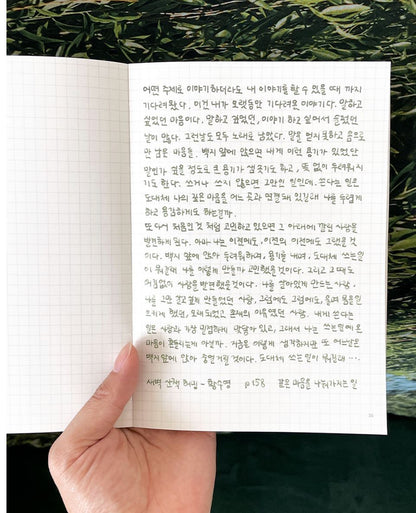 어떤 주제로 이야기하더라도 내 이야기를 할 수 있을 때 까지
기다려왔다. 이건 내가 오랫동안 기다려온 이야기다. 말하고
싶었던 마음이다. 말하고 싶었던, 이야기 하고 싶어서
날이 많다. 그런날도 모두 노래로 남았다. 말을 얻지 못하고 음으로
만 남은 마음들. 백지 앞에 앉으면 내게 이런 용기가 있었던
말인가 싶을 정도로 큰 용기가 생긋기도 하고, 또 없이 두려워지
기도 한다. 쓰거나 쓰지 않으면 그만인 일인데. 쓴다는 일은
도대체 나의 깊은 마음을 어느 곳과 연결돼 있길래 나를 두렵게
하고 용감하게도 하는걸까.
또 다시 처음인 것 처럼 고민하고 있으면 그 아래에 깔린 사랑을
발견하게 된다. 아마 나는 이전에도, 이전의 이전에도 그랬을 것
이다. 백지 앞에 앉아 두려워하며, 용기를 내며, 도대체 쓰는일
이 뭐길래 나를 이렇게 만들까 고민했을것이다. 그리고 그 때도
어김없이 사랑을 발견했을것이다. 나를 살아있게 만드는 사랑.
나를 그만 살고싶게 만들었던 사랑, 그럼에도 그럼에도, 몸에 힘을
모르게 했던, 모대되었고 혼자의 이유였던 사랑. 내게 쓴다는
일은 사랑과 가장 밀접하게 맞닿아 있고, 그래서 나는 쓰는일에 온
마음이 흔들리는게 아닐까. 지금은 이렇게 생각하지만 또 어느날은
백지 앞에 앉아 중얼거릴 것이다. 도대체 쓰는일이 뭐길래 ….
새벽 산책 허밍 - 황수영 p158 같은 마음을 나눠가지는 일